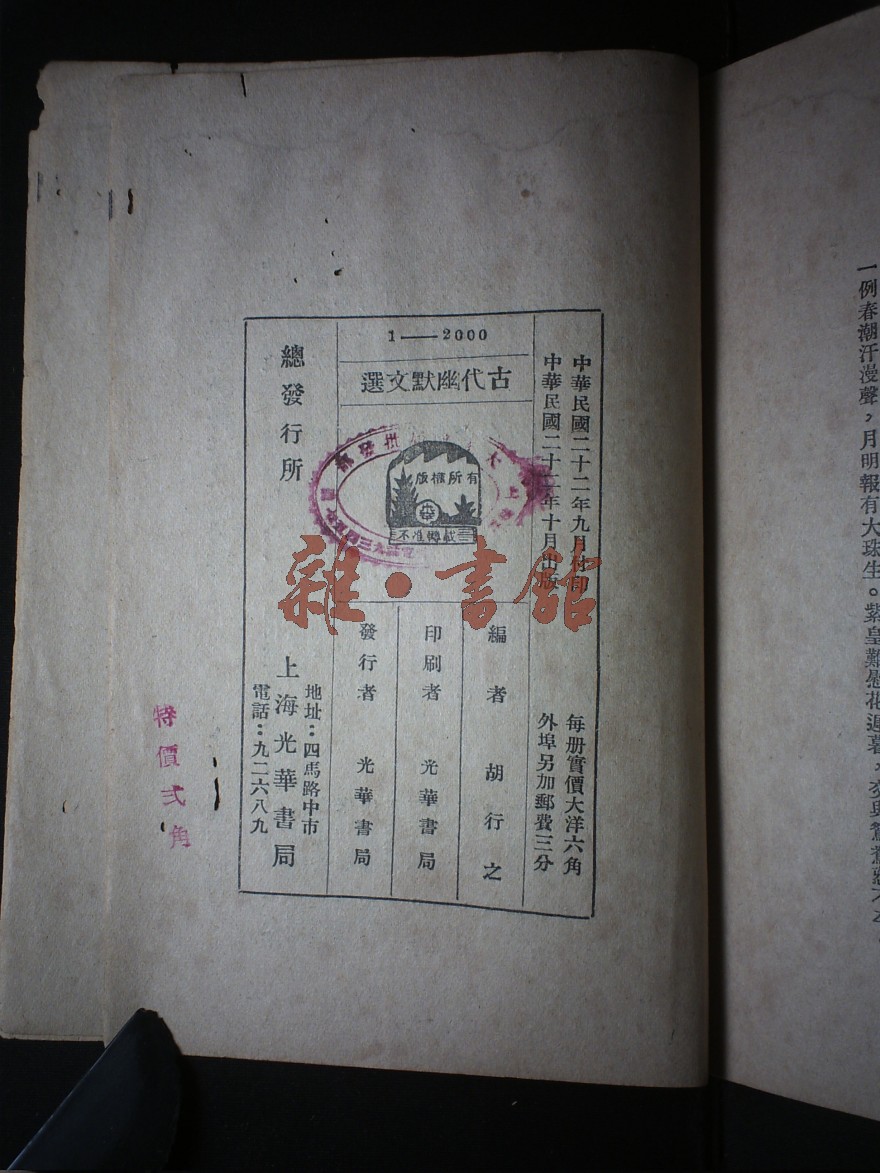 中華民國二十二年九月付印
中華民國二十二年十月出版
每册實價大洋六角
外埠另加郵費三分
1——2000
古代幽默文選
版權所有
不准轉載
編者 胡行之
印刷者 光華書局
發行者 光華書局
總發行所
上海光華書局
地址：四馬路中市
電話：九二六八九
特價弍角
雜·書館
一例春潮汗漫聲，月明報有大珠生。紫皇難慰花遲暮，交與鴛鴦